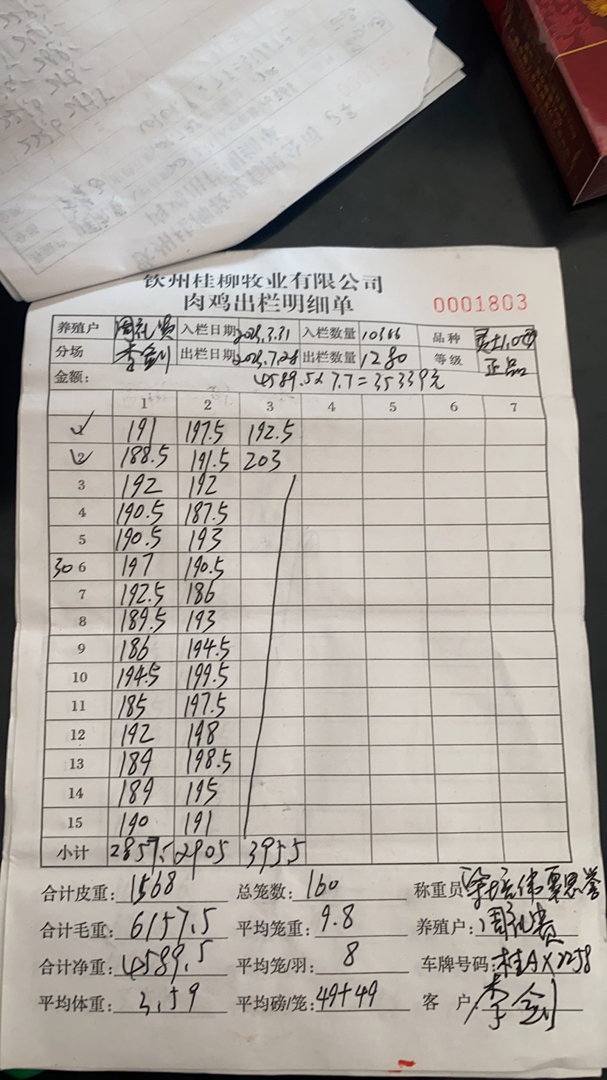 钦州桂柳牧业有限公司
肉鸡出栏明细单
0001803
养殖户 周礼贵 入栏日期 2023.3.31 入栏数量 10366 品种
分场 李剑 出栏日期 2023.7.28 出栏数量 1280 等级 正品
金额： 4589.5×7.7=35339元
1 2 3 4 5 6 7
1 191 197.5 192.5
2 188.5 191.5 203
3 192 192
4 190.5 187.5
5 190.5 193
30 6 197 190.5
7 192.5 186
8 189.5 193
9 186 194.5
10 194.5 199.5
11 185 197.5
12 192 198
13 189 198.5
14 189 195
15 190 191
小计 2857.5 2905 395.5
合计皮重： 1568 总笼数： 160 称重员
合计毛重： 6157.5 平均笼重： 9.8 养殖户： 周礼贵
合计净重： 4589.5 平均笼/羽： 8 车牌号码： 桂AX2258
平均体重： 3.59 平均磅/笼： 49+49 客 户 李剑